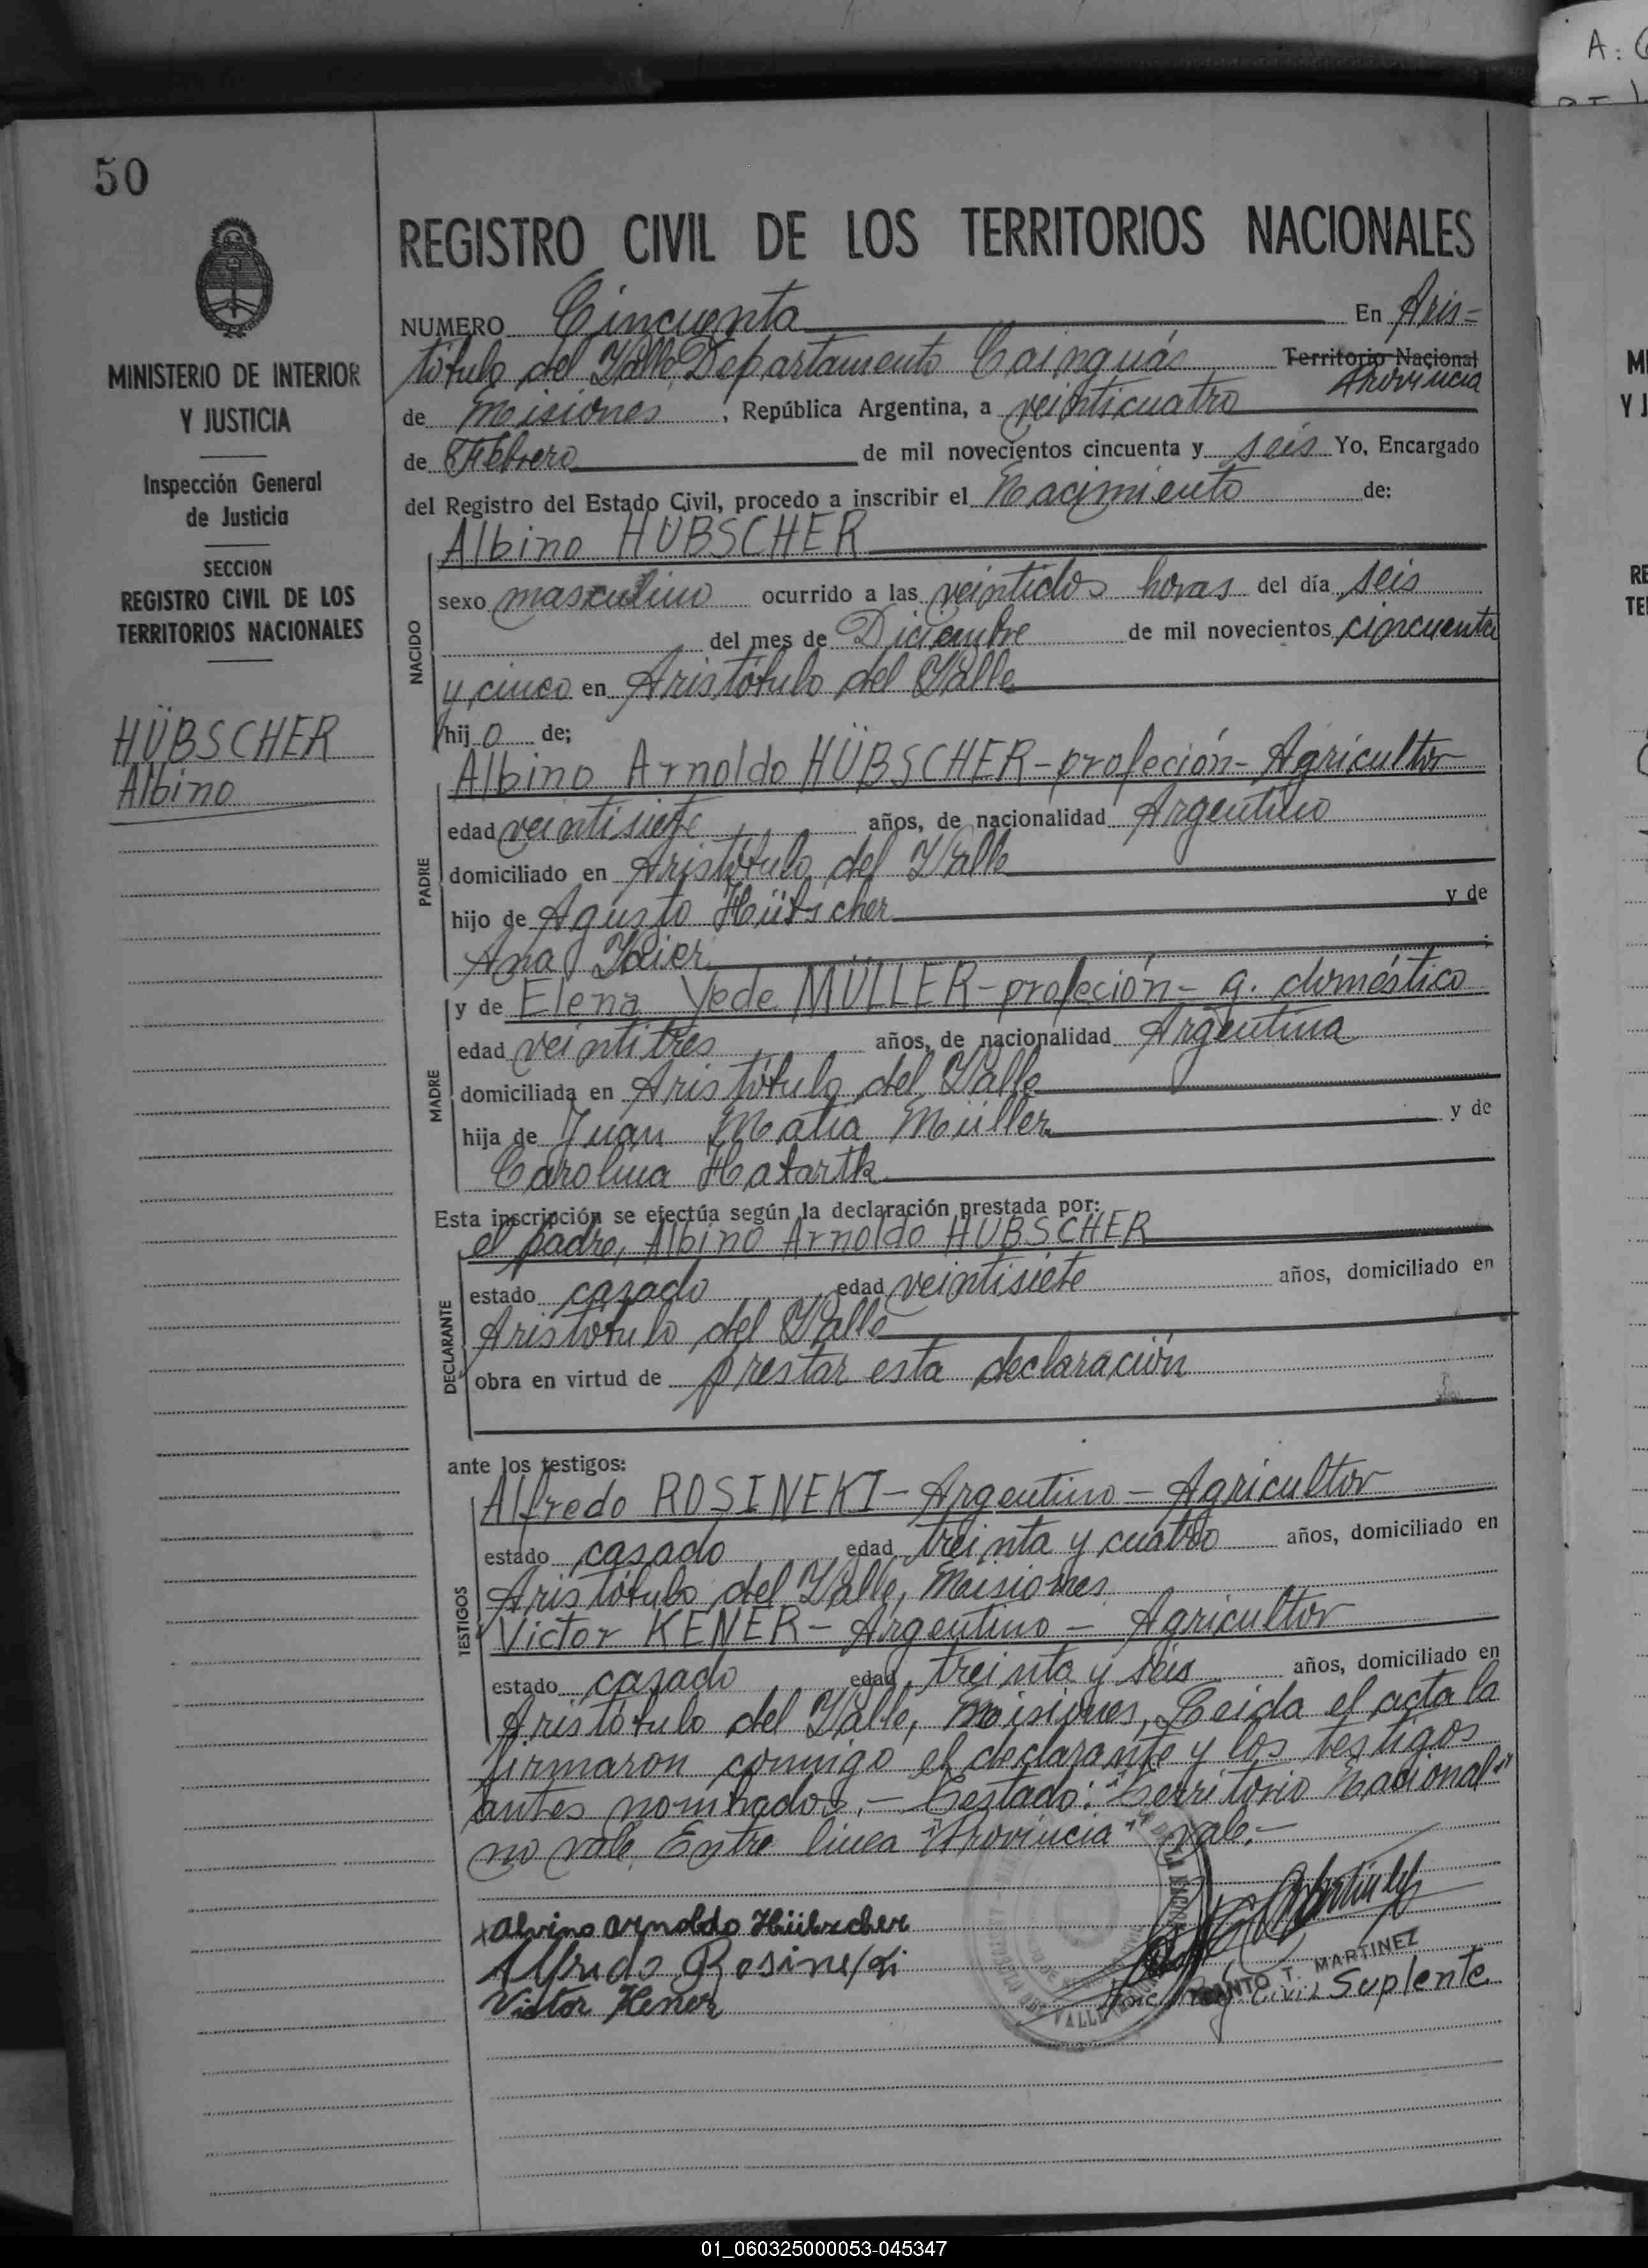 A: 6
50
REGISTRO CIVIL DE LOS TERRITORIOS NACIONALES
MINISTERIO DE INTERIOR
Y JUSTICIA
Inspección General
de Justicia
SECCION
REGISTRO CIVIL DE LOS
TERRITORIOS NACIONALES
HÜBSCHER
Albino
NUMERO Cincuenta En Aris=
tóbulo del Valle Departamento Cainguás Territorio Nacional
Provincia
de Misiones, República Argentina, a veinticuatro
de Febrero de mil novecientos cincuenta y seis Yo, Encargado
del Registro del Estado Civil, procedo a inscribir el Nacimiento de:
NACIDO
Albino HÜBSCHER
sexo masculino ocurrido a las veintidos horas del día seis
del mes de Diciembre de mil novecientos cincuenta
y cinco en Aristóbulo del Valle
hijo de;
PADRE
Albino Arnoldo HÜBSCHER-profeción-Agricultor
edad veintisiete años, de nacionalidad Argentino
domiciliado en Aristóbulo del Valle
hijo de Agusto Hübscher y de
Ana
MADRE
y de Elena Yede MÜLLER-profeción- q. doméstico
edad veintitres años, de nacionalidad Argentina
domiciliada en Aristóbulo del Valle
hija de Juan Matia Müller y de
Carolina
Esta inscripción se efectúa según la declaración prestada por:
DECLARANTE
el padre, Albino Arnoldo HÜBSCHER
estado casado edad veintisiete años, domiciliado en
Aristóbulo del Valle
obra en virtud de prestar esta declaración
ante los testigos:
TESTIGOS
Alfredo ROSINEKI-Argentino-Agricultor
estado casado edad treinta y cuatro años, domiciliado en
Aristóbulo del Valle, Misiones
Victor KENER-Argentino-Agricultor
estado casado edad treinta y seis años, domiciliado en
Aristóbulo del Valle, Misiones, Leida el acta la
firmaron conmigo el declarante y los testigos
antes nombrados.- Testado: "Territorio Nacional"
no vale. Entre línea "Provincia" vale.-
x Alvino Arnoldo Hübscher
Alfredo Rosineki
Victor Kener
T. MARTINEZ
Civil Suplente
01_060325000053-045347